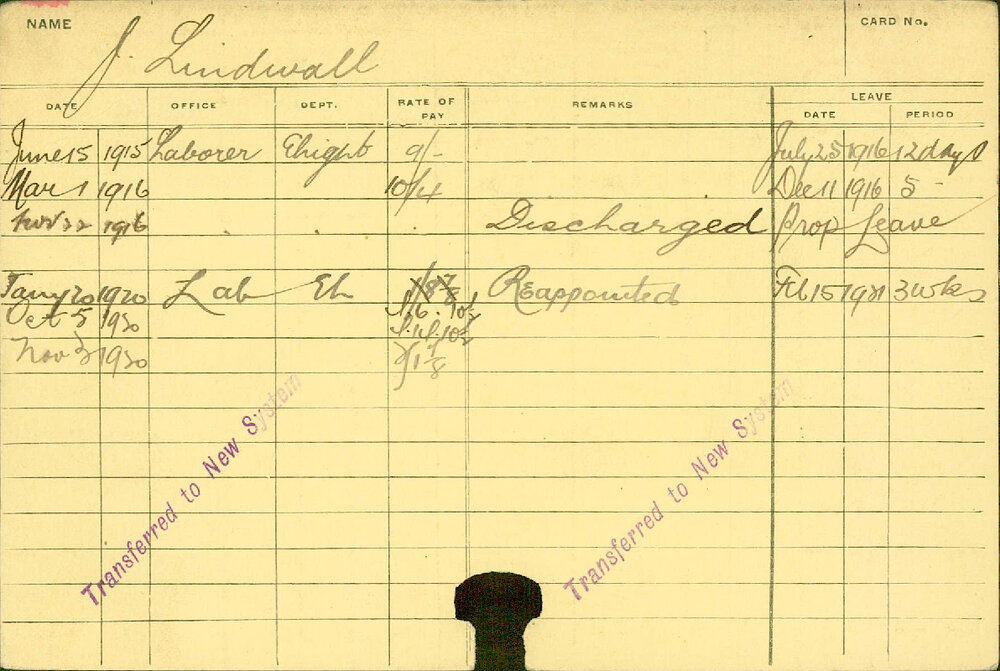 NAME
CARD No.
J. Lindwall
DATE OFFICE DEPT. RATE OF PAY REMARKS LEAVE
DATE PERIOD
June 15 1915 Laborer 9/- July 25 1916 12 days
Mar 1 1916 10/4 Dec 11 1916 5
22 1916 Discharged Prop Leave
Jany 20 1920 Lab Eh Reappointed Feb 15 1921 3 wks
Oct 5 1920
Nov 1920
Transferred to New System
Transferred to New System